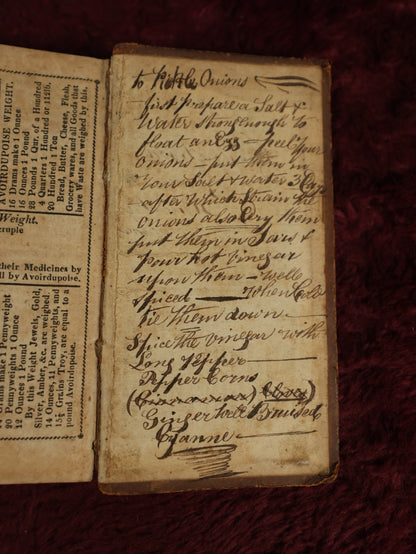 AVOIRDUPOISE WEIGHT.
16 Drams make 1 Ounce
16 Ounces 1 Pound
28 Pounds 1 Qur. of a Hundred
4 Quarters 1 Hundred or 112lb.
20 Hundred 1 Ton
Bread, Butter, Cheese, Flesh,
Grocery wares, and all Goods that
have Waste are weighed by this.
Weight.
cruple
their Medicines by
ll by Avoirdupoise.
make 1 Pennyweight
20 Pennyweights 1 Ounce
12 Ounces 1 Pound
By this Weight Jewels, Gold,
Silver, Amber, &c. are weighed.
14 Ounces, 11 Pennyweights, and
15½ Grains Troy, are equal to a
pound Avoirdupoise.
to Pickle Onions
first prepare a Salt &
Water strong enough to
float an Egg - peel your
Onions - put them in
your Salt & water 3 Days
after which strain the
onions also Dry them
put them in Jars &
pour hot Vinegar
upon them - well
spiced - When Cold
tie them down -
Spice the Vinegar with
Long Pepper -
Pepper Corns
(Cinnamon) Cloves
Ginger well Bruised
Cyanne -